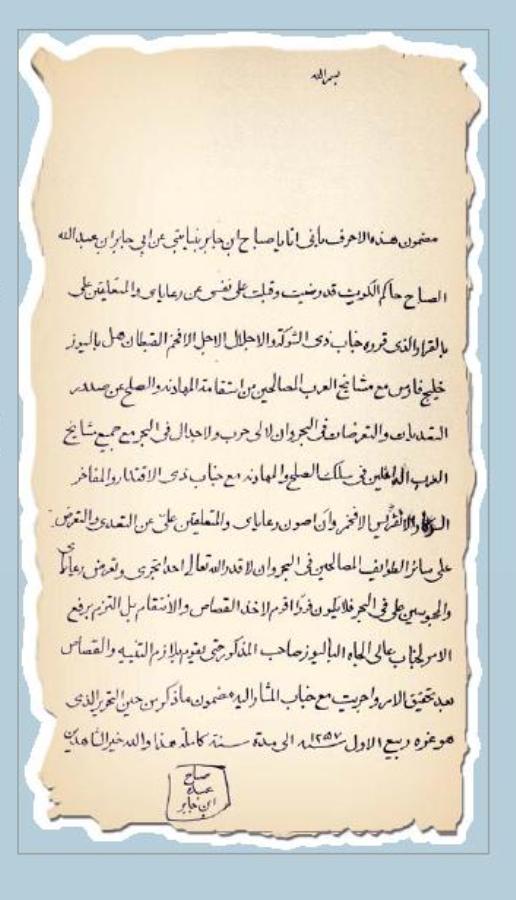 بسم الله
مضمون هذه الاحرف بانى انا يا صباح ابن جابر بنيابتي عن ابي جابر ابن عبد الله
الصباح حاكم الكويت قد رضيت وقبلت على نفسي عن رعاياى والمتعلقين على
بالقرار الذى قرروه جناب ذى الشوكة والاجلال الاجل الافخم القبطان هنل باليوز
خليج فارس مع مشائخ العرب المصالحين من استقامة المهادنه والصلح عن صدر
التعديات والتعرضات فى البحر وان لا لى حرب ولا جدال فى البحر مع جميع مشائخ
العرب الداخلين فى سلك الصلح والمهادنه مع جناب ذى الاقتدار والمفاخر
السركار الانقريس الافخم وان اصون رعاياى والمتعلقين علىّ عن التعدى والتعرض
على سائر الطوايف المصالحين فى البحر وان لا قدر الله تعالى احدا تجرى وتعرض رعاياى
والمحوسين على فى البحر فلا يكون فورا اقوم لاخذ القصاص والانتقام بل التزم برفع
الامر لجناب عالى الجاه الباليوز صاحب المذكور حتى يقوم بلازم التنبيه والقصاص
بعد تحقيق الامر واجريت مع جناب المشار اليه مضمون ما ذكر من حين التحرير الذى
هو غره ربيع الاول سنة ١٢٥٧ الى مدة سنة كاملة هذا والله خير الشاهدين
صباح
عبده
ابن جابر